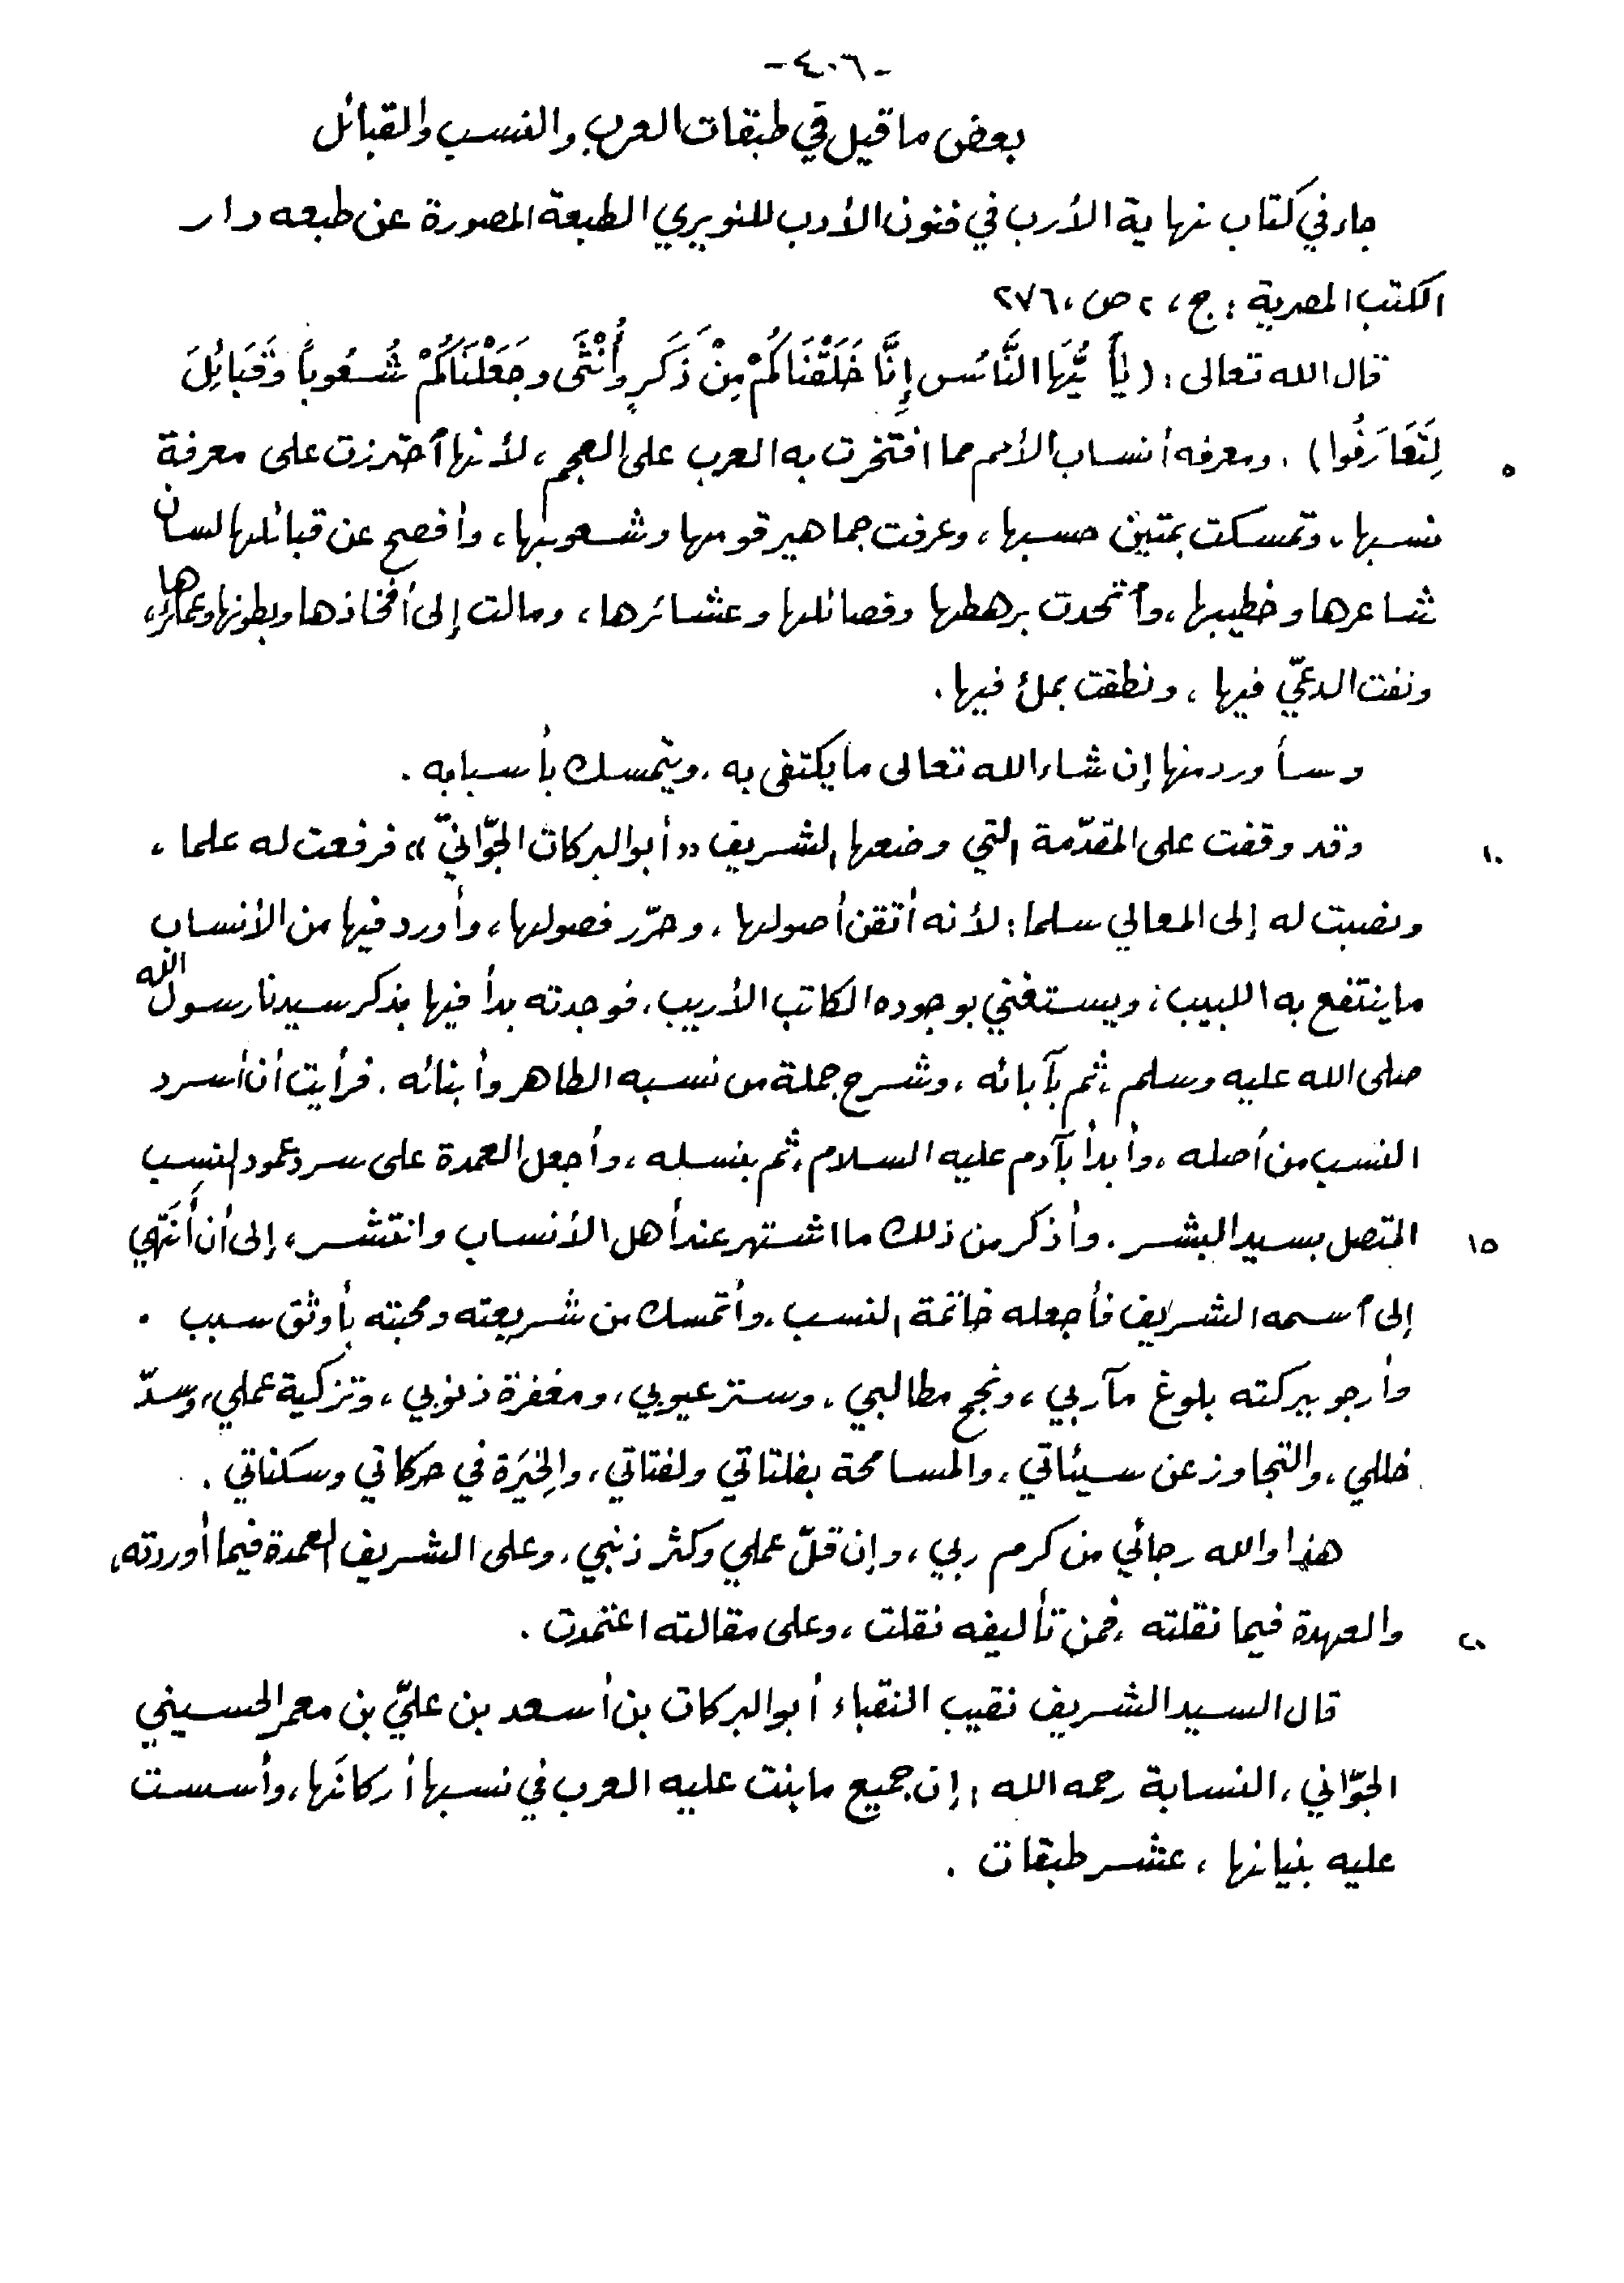 -٤٠٦-
بعض ما قيل في طبقات العرب والنسب والقبائل
جاء في كتاب نهاية الأرب في فنون الأدب للنويري الطبعة المصورة عن طبعه دار
الكتب المصرية : ج ، ٢ ص ، ٢٧٦
قال الله تعالى : ( يَٰأَيُّهَا النَّاسُ إِنَّا خَلَقْنَاكُمْ مِنْ ذَكَرٍ وَأُنْثَى وَجَعَلْنَاكُمْ شُعُوباً وَقَبَائِلَ
لِتَعَارَفُوا ) . ومعرفه أنساب الأمم مما افتخرت به العرب على العجم ، لأنها آحترزت على معرفة
٥
نسبها ، وتمسكت بمتين حسبها ، وعرفت جماهير قومها وشعوبها ، وأفصح عن قبائلها لسان
شاعرها وخطيبها ، وآتحدت برهطها وفصائلها وعشائرها ، ومالت إلى أفخاذها وبطونها وعمائرها ،
ونفت الدعيّ فيها ، ونطقت بملئ فيها .
وسأورد منها إن شاء الله تعالى ما يكتفى به ، ويتمسك بأسبابه .
وقد وقفت على المقدّمة التي وضعها الشريف « أبو البركات الجوّانيّ » فرفعت له علما ،
١٠
ونصبت له إلى المعالي سلما : لأنه أتقن أصولها ، وحرّر فصولها ، وأورد فيها من الأنساب
ما ينتفع به اللبيب ؛ ويستغني بوجوده الكاتب الأريب . فوجدته بدأ فيها بذكر سيدنا رسول الله
صلى الله عليه وسلم ، ثم بآبائه ، وشرح جملة من نسبه الطاهر وأبنائه . فرأيت أن أسرد
النسب من أصله ، وأبدأ بآدم عليه السلام ، ثم بنسله ، وأجعل العمدة على سرد عمود النسب
المتصل بسيد البشر . وأذكر من ذلك ما اشتهر عند أهل الأنساب وانتشر ، إلى أن أَنتَهي
١٥
إلى آسمه الشريف فأجعله خاتمة النسب ، وأتمسك من شريعته ومحبته بأوثق سبب .
وأرجو ببركته بلوغ مآربي ، ونجح مطالبي . وستر عيوبي ، ومغفرة ذنوبي ، وتزكية عملي ، وسدّ
خللي ، والتجاوز عن سيئاتي ، والمسامحة بفلتاتي ولفتاتي ، والخِيَرَة في حركاتي وسكناتي .
هذا والله رجائي من كرم ربي ، وإن قلّ عملي وكثر ذنبي . وعلى الشريف العمدة فيما أوردته ،
والعهدة فيما نقلته ، فمن تأليفه نقلت ، وعلى مقالته اعتمدت .
٢٠
قال السيد الشريف نقيب النقباء أبو البركات بن أسعد بن عليّ بن معمر الحسيني
الجوّاني ، النسابة رحمه الله : إن جميع ما بنت عليه العرب في نسبها أركانَها ، وأسست
عليه بنيانها ، عشر طبقات .